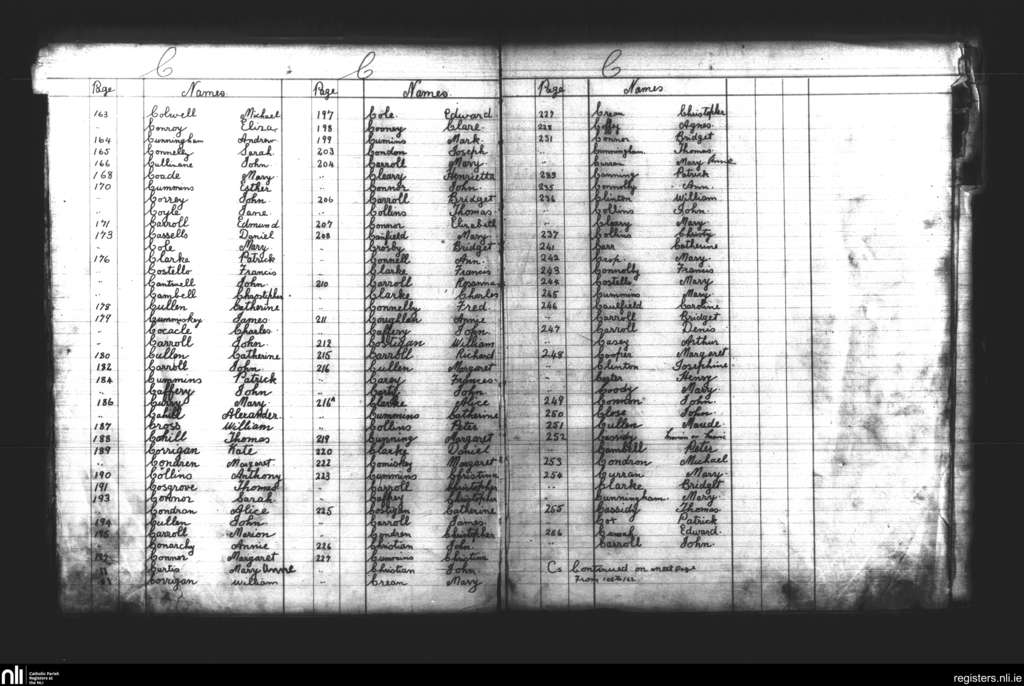 C
Page Names
163 Colwell Michael
" Conroy Eliza
164 Cunningham Andrew
165 Connelly Sarah
166 Cullinane John
168 Coade Mary
170 Cummins Esther
" Correy John
" Coyle Jane
171 Carroll Edmund
173 Cassells Daniel
" Cole Mary
176 Clarke Patrick
" Costello Francis
" Cantwell John
" Cambell
178 Cullen Catherine
179 James
" Cocacle Charles
" Carroll John
180 Cullen Catherine
182 Carroll John
184 Cummins Patrick
" Caffery John
186 Curry Mary
" Cahill Alexander
187 Cross William
188 Cahill Thomas
189 Corrigan Kate
" Condren Margaret
190 Collins Anthony
191 Cosgrove Thomas
193 Connor Sarah
" Condran Alice
194 Cullen John
195 Carroll Marion
" Conarchy Annie
Connor Margaret
Curtis Mary Anne
Corrigan William
C
Page Names
197 Cole Edward
198 Cooney Clare
199 Cumins Mark
203 Condon Joseph
204 Carroll Mary
" Cleary Henrietta
" Connor John
206 Carroll Bridget
" Collins Thomas
207 Connor Elizabeth
208 Canfield Mary
" Crosby Bridget
" Connell Ann
" Clarke Francis
210 Carroll Rosanna
" Clarke Charles
" Connelly Fred
211 Coughlan Annie
" Caffery John
212 Costigan William
215 Carroll Richard
216 Cullen Margaret
" Carey Frances
" Carty John
216A Clarke Alice
" Cummins Catherine
" Collins Peter
219 Cunning Margaret
220 Clarke Daniel
222 Comiskey Margaret
223 Cummins Christina
" Carroll Christopher
" Caffrey Christopher
225 Costigan Catherine
" Carroll James
" Condren Christopher
226 Christian John
227 Cummins Christina
" Christian John
" Crean Mary
C
Page Names
227 Crean Christopher
228 Coffey Agnes
231 Connor Bridget
" Cunningham Thomas
" Curran Mary Anne
233 Canning Patrick
235 Connolly Ann
236 Clinton William
" Collins John
" Cleary Mary
237 Collins Christy
241 Carr Catherine
242 Mary
243 Connolly Francis
244 Costello Mary
245 Cummins Mary
246 Caulfield Caroline
" Carroll Bridget
247 Carroll Denis
" Casey Arthur
248 Cooper Margaret
" Clinton Josephine
" Henry
" Coody Mary
249 Connor John
250 Close John
251 Cullen Maude
252 Cassidy
" Cambell Peter
253 Condron Michael
254 Curran Mary
" Clarke Bridget
" Cunningham Mary
255 Cassidy Thomas
" Cox Patrick
256 Edward
" Carroll John
Cs Continued on next Page
From
nli Catholic Parish Registers at the NLI
registers.nli.ie